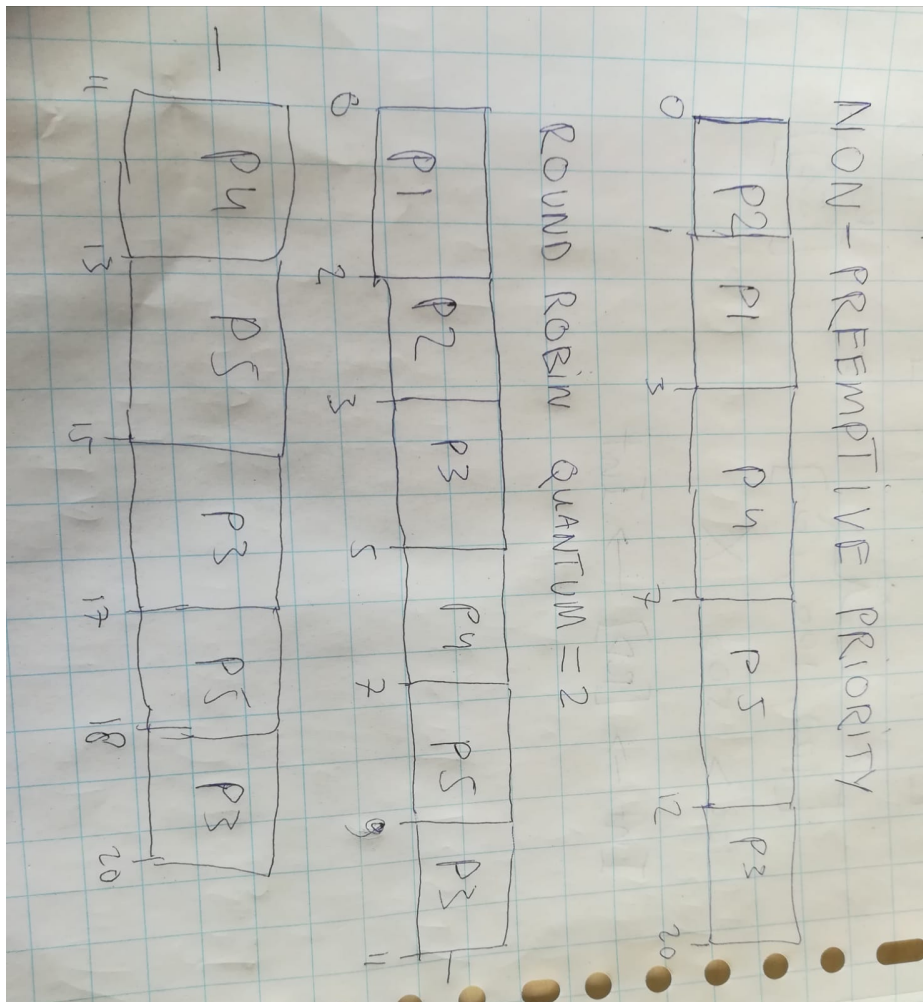 NON-PREEMPTIVE PRIORITY
P2 P1 P4 P5 P3
0 1 3 7 12 20
ROUND ROBIN QUANTUM = 2
P1 P2 P3 P4 P5 P3
0 2 3 5 7 9 11
P4 P5 P3 P5 P3
11 13 15 17 18 20